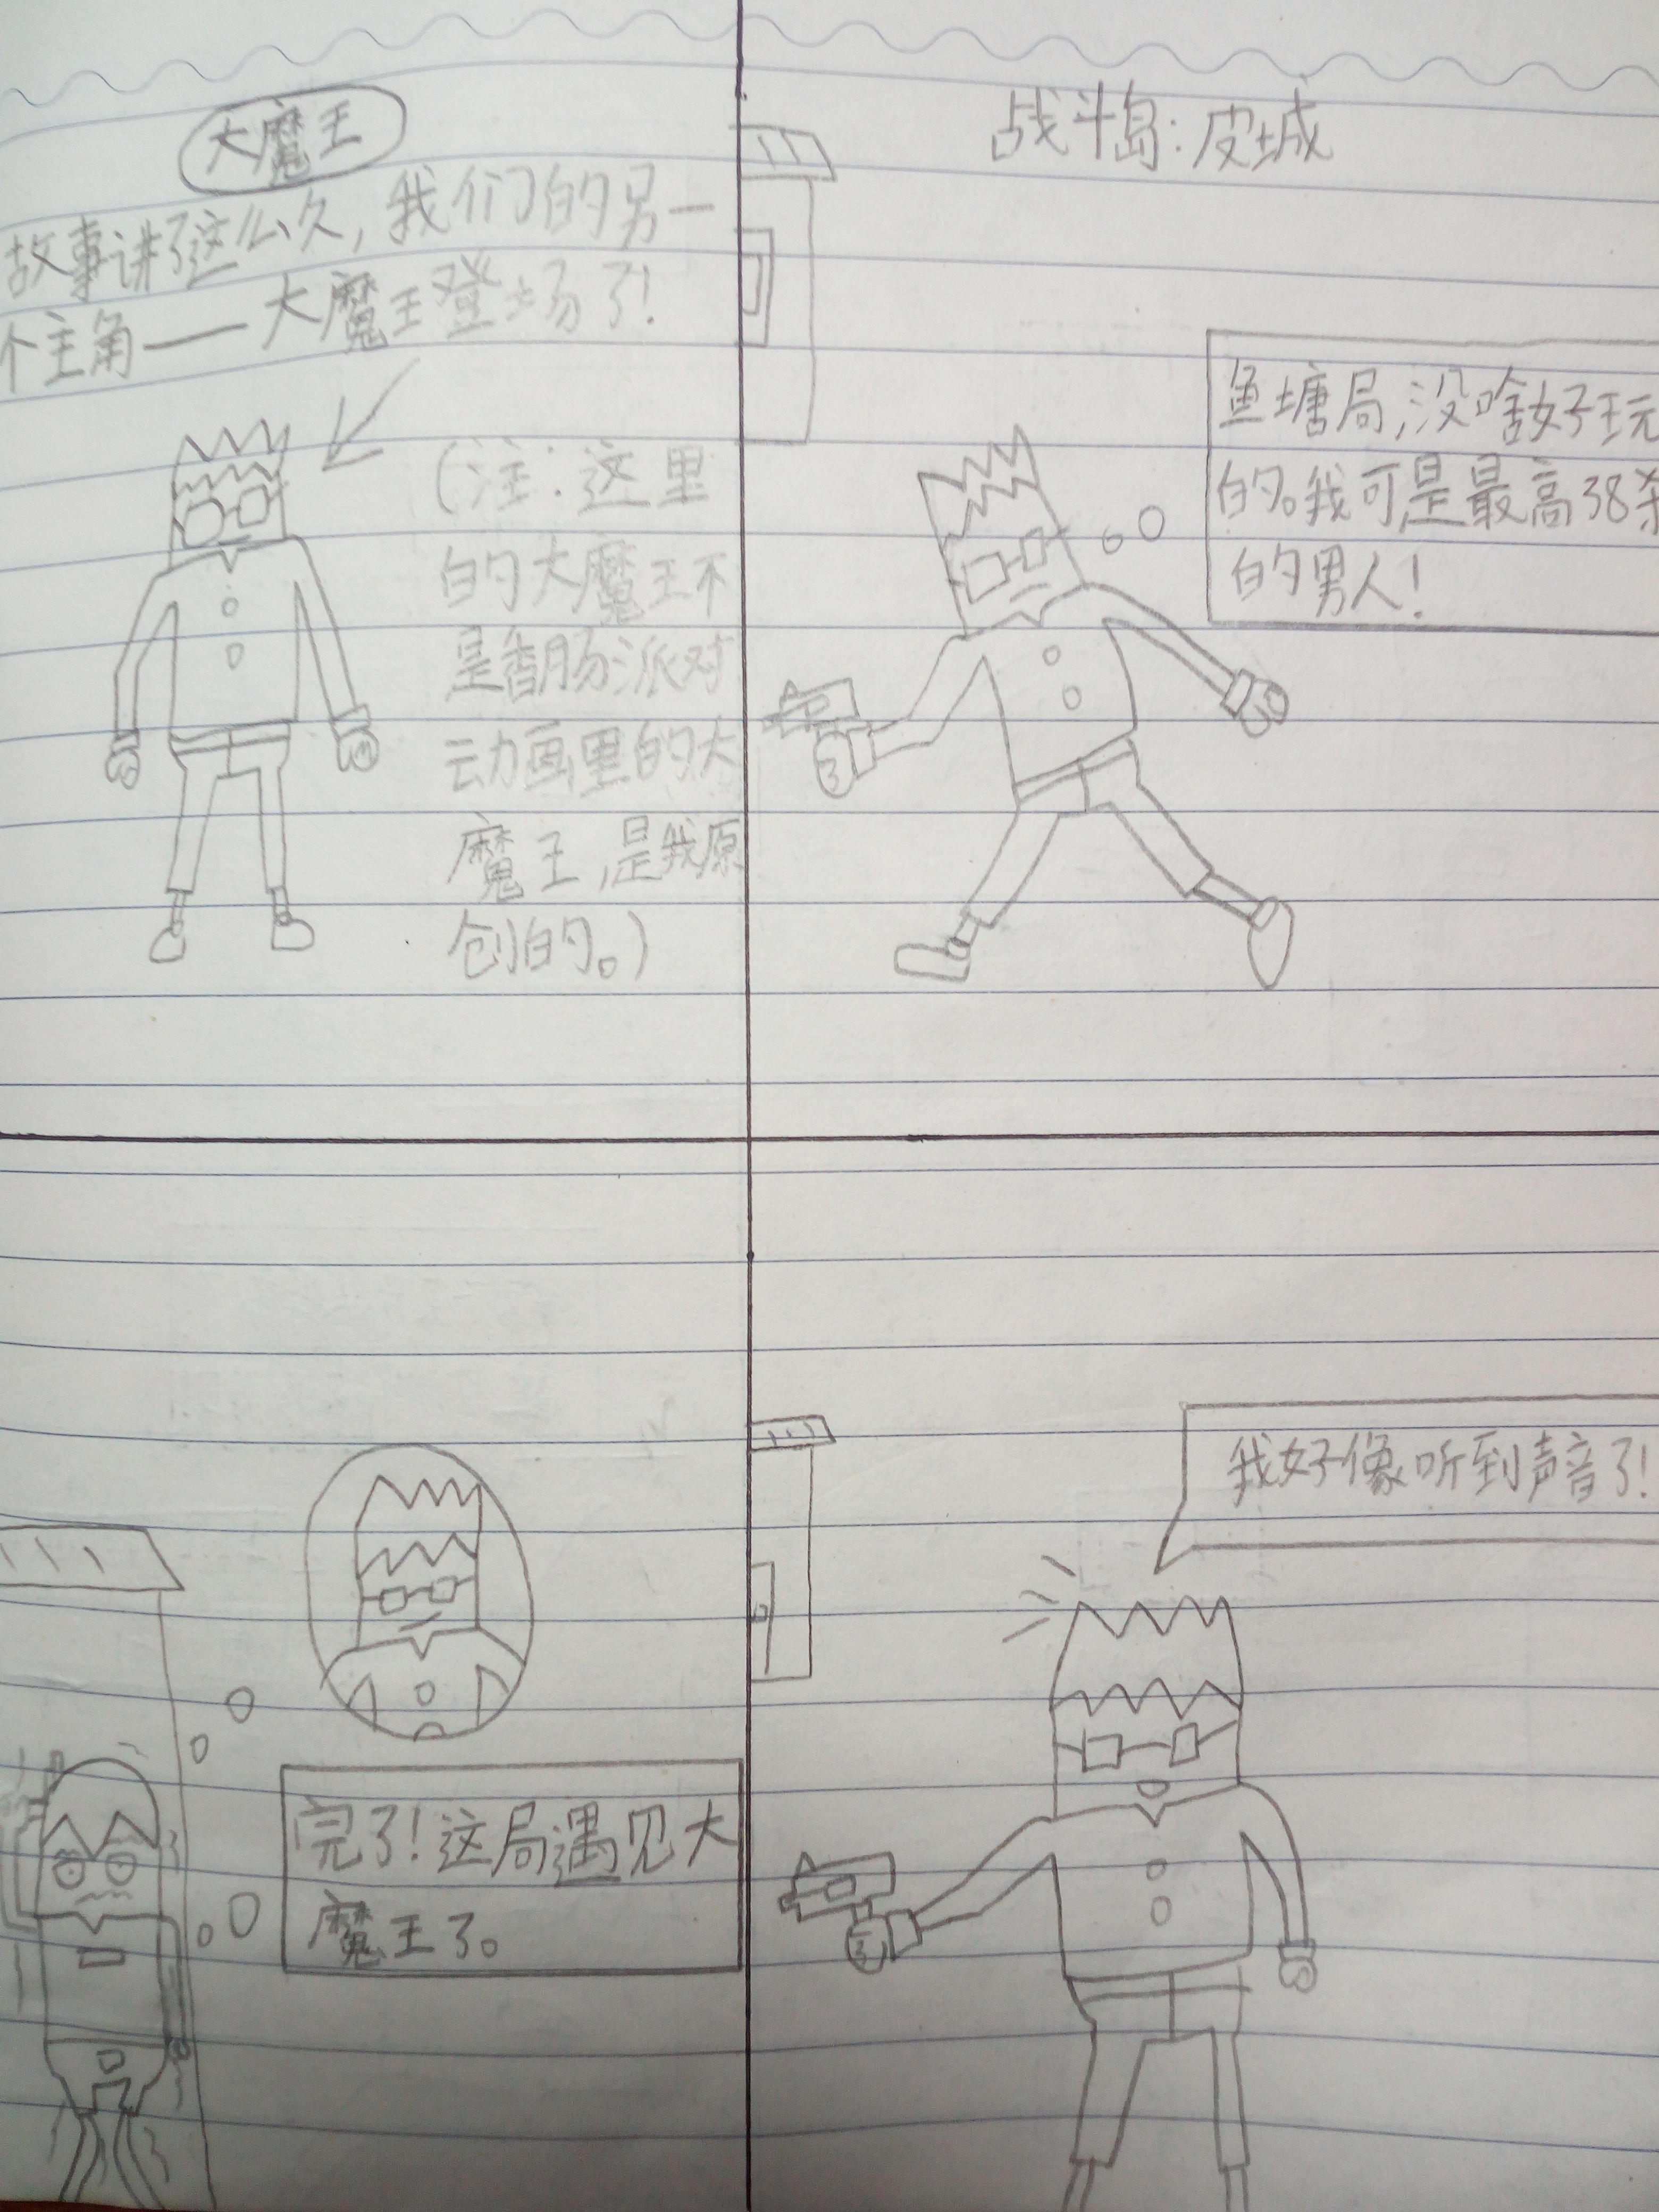 大魔王
故事讲了这么久,我们的另一
个主角——大魔王登场了!
(注:这里
的大魔王不
是香肠派对
动画里的大
魔王,是我原
创的。)
战斗岛:皮城
鱼塘局,没啥好玩
的。我可是最高38杀
的男人!
完了!这局遇见大
魔王了。
我好像听到声音了!